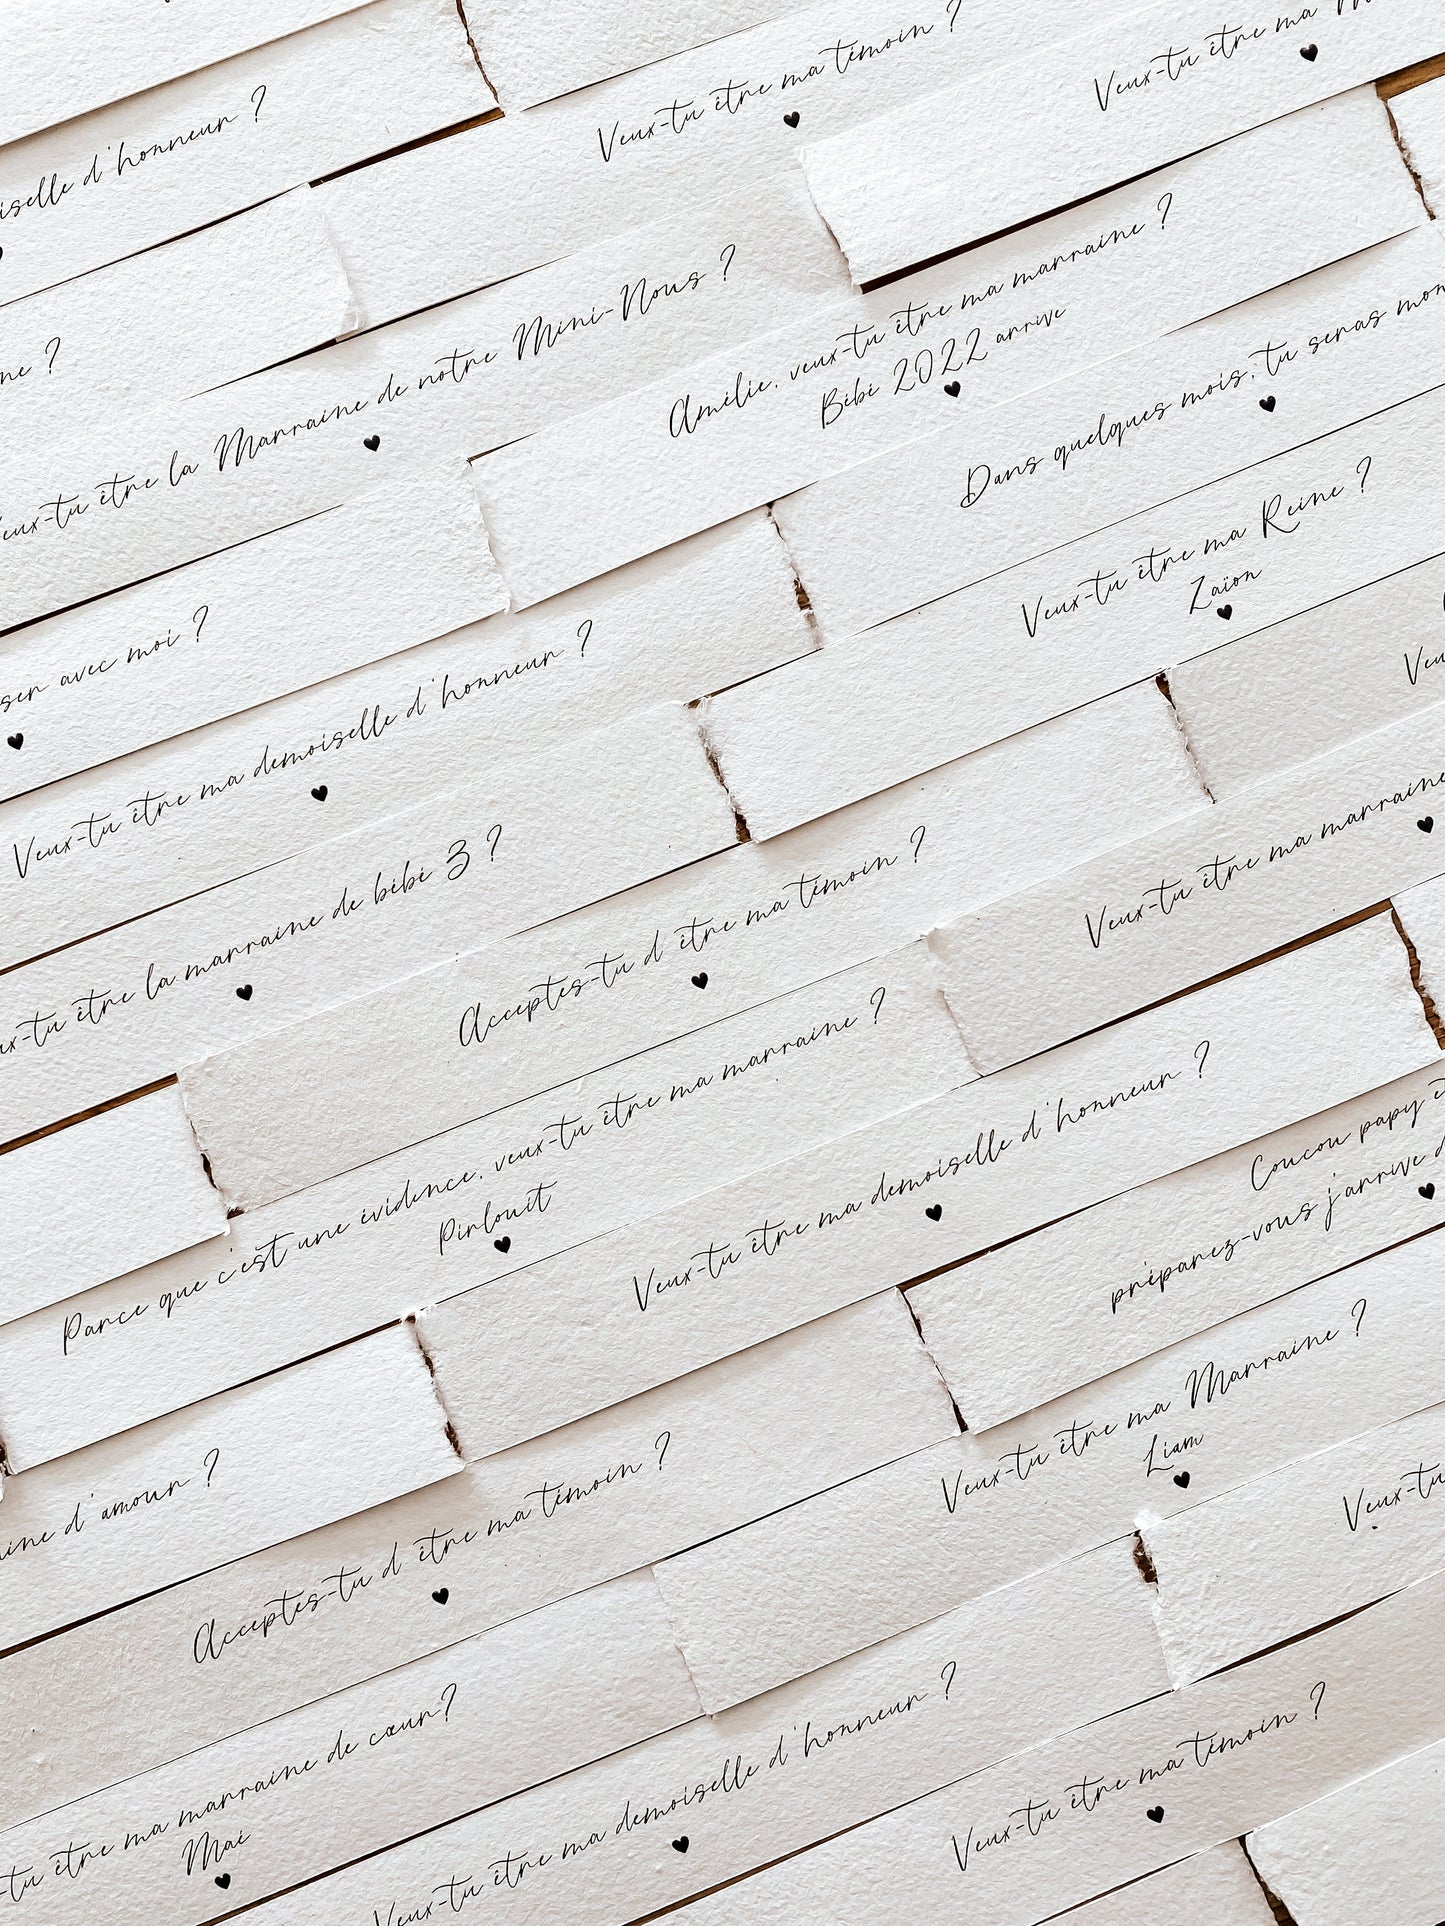 d'honneur ?
Veux-tu être ma témoin ?
Veux-tu être ma
Veux-tu être la Marraine de notre Mini-Nous ?
Amélie, veux-tu être ma marraine ?
Bébé 2022 arrive
Dans quelques mois, tu seras mon
avec moi ?
Veux-tu être ma demoiselle d'honneur ?
Veux-tu être ma Reine ?
Zaïon
tu être la marraine de bébé 3 ?
Acceptes-tu d'être ma témoin ?
Veux-tu être ma marraine
Parce que c'est une évidence, veux-tu être ma marraine ?
Pinlouit
Veux-tu être ma demoiselle d'honneur ?
Coucou papy
préparez-vous j'arrive
d'amour ?
Acceptes-tu d'être ma témoin ?
Veux-tu être ma Marraine ?
Liam
Veux-tu
tu être ma marraine de cœur?
Maé
Veux-tu être ma demoiselle d'honneur ?
Veux-tu être ma témoin ?